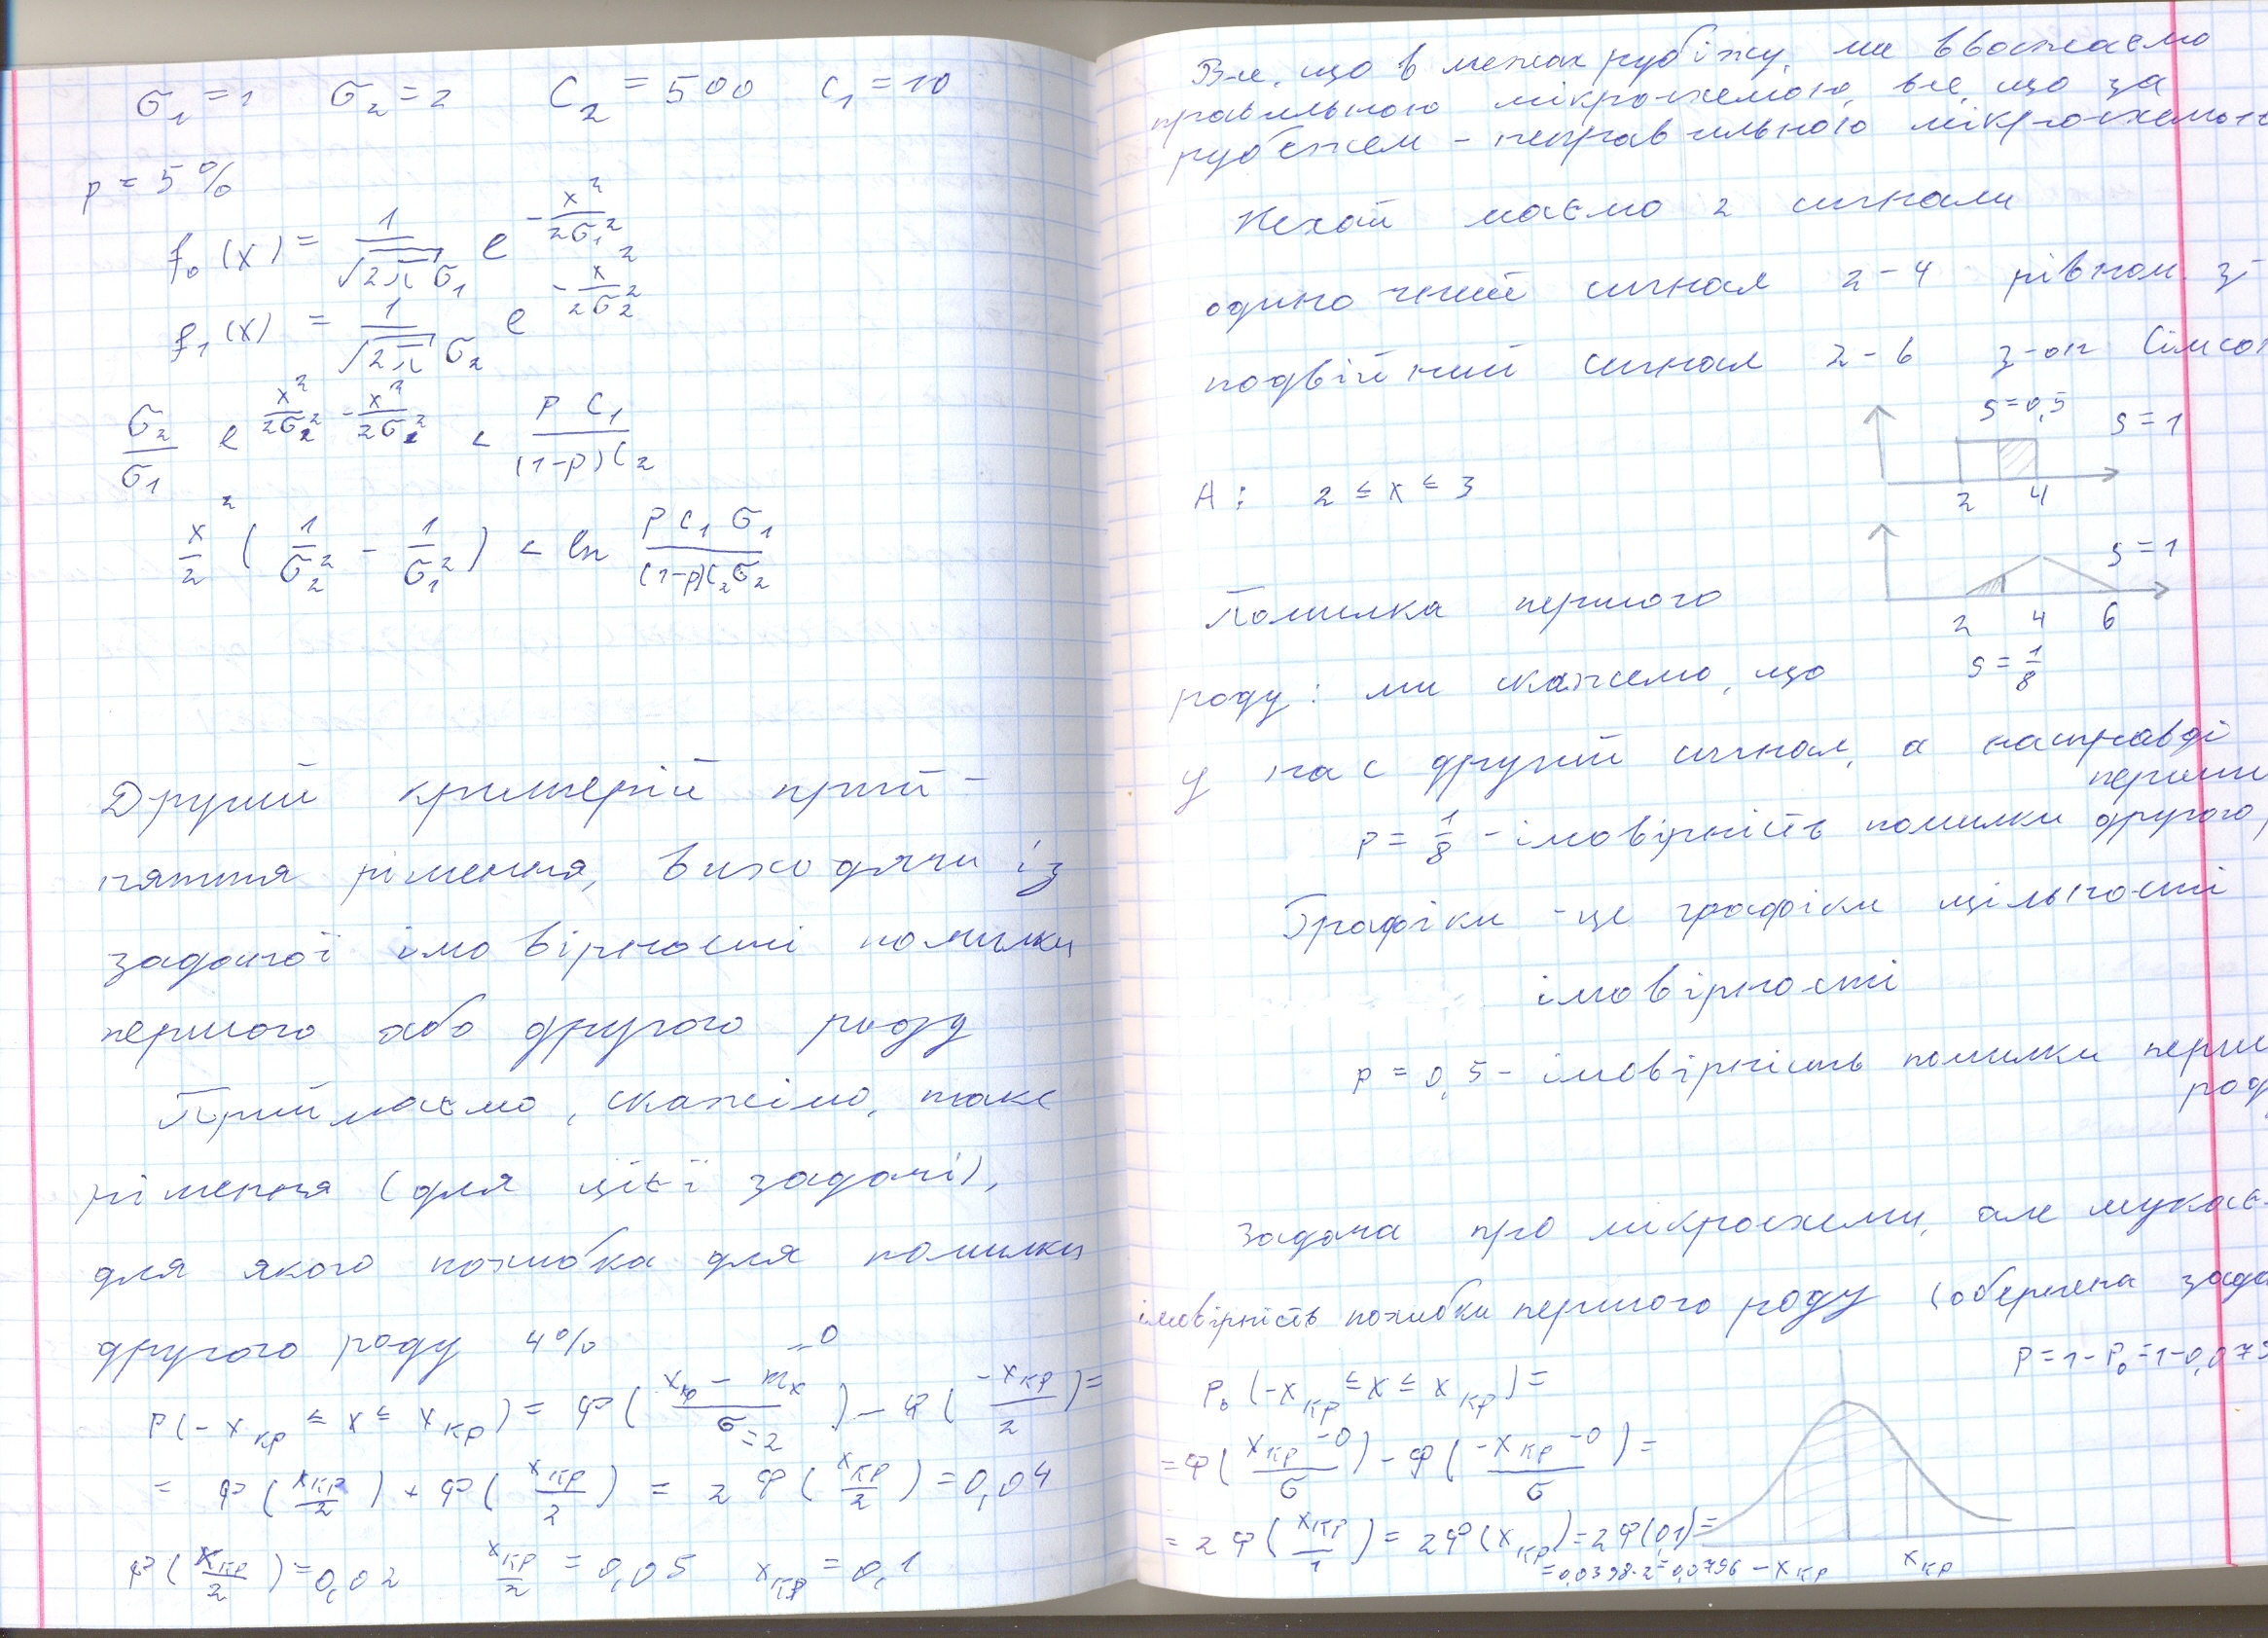 σ₁ = 1 σ₂ = 2 C₂ = 500 C₁ = 10
p = 5%
f₀(x) = 1/(√(2π) σ₁) e^(-x²/(2σ₁²))
f₁(x) = 1/(√(2π) σ₂) e^(-x²/(2σ₂²))
σ₂/σ₁ e^(x²/(2σ₂²) - x²/(2σ₁²)) < p C₁/((1-p)C₂)
x²/2 (1/σ₂² - 1/σ₁²) < ln (p C₁ σ₁/((1-p)C₂σ₂))
Другий критерій прий-
няття рішення, виходячи із
заданої імовірності помилки
першого або другого роду
Приймаємо, скажімо, таке
рішення (для цієї задачі),
для якого похибка для помилки
другого роду 4%
P(-xкр ≤ x ≤ xкр) = Φ((xкр - mx)/σ) - Φ(-xкр/2) =
=0
=2
= Φ(xкр/2) + Φ(xкр/2) = 2Φ(xкр/2) = 0,04
Φ(xкр/2) = 0,02 xкр/2 = 0,05 xкр = 0,1
В-се, що в межах рубіжу, ми вважаємо
правильною мікросхемою, все, що за
рубежем - неправильною мікросхемою
Нехай маємо 2 сигнали
одиночний сигнал 2-4 рівном. з-
подвійний сигнал 2-6 з-он Сімсо
S=0,5 S=1
A: 2 ≤ x ≤ 3
2 4
S=1
Помилка першого
2 4 6
роду: ми скажемо, що
S = 1/8
у нас другий сигнал, а насправді
перший
p = 1/8 - імовірність помилки другого
Графіки - це графіки щільності
імовірності
p = 0,5 - імовірність помилки перш
род
Задача про мікросхеми, але шукає-
імовірність похибки першого роду (обернена зада
P = 1 - P₀ = 1 - 0,079
P₀(-xкр ≤ x ≤ xкр) =
= Φ((xкр - 0)/σ) - Φ((-xкр - 0)/σ) =
= 2Φ(xкр/1) = 2Φ(xкр) = 2Φ(0,1) =
= 0,0398·2 = 0,0796
-xкр xкр